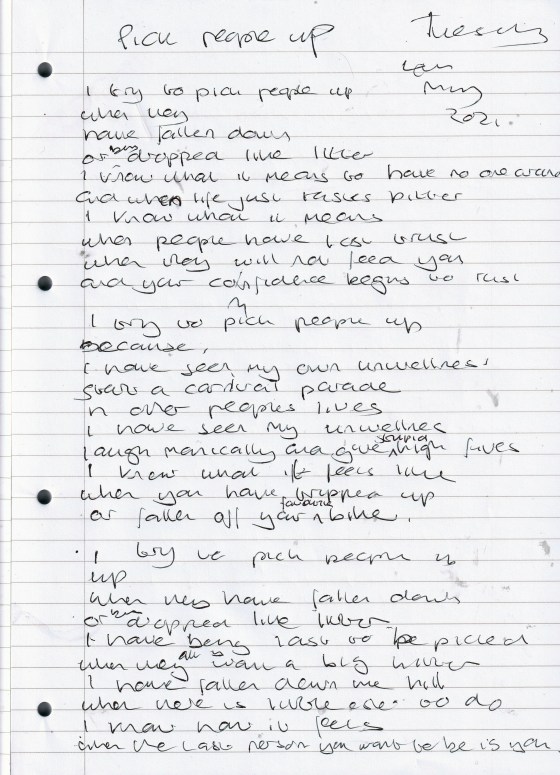 Pick people up
Tuesday
4th
May
2021.
I try to pick people up
when they
have fallen down
or been dropped like litter
I know what it means to have no one around
and when life just tastes bitter
I know what it means
when people have lost trust
when they will not feed you
and your confidence begins to rust
I try to pick people up
because,
I have seen my own unwellness
start a carnival parade
in other peoples lives
I have seen my unwellness
laugh manically and give stupid high fives
I know what it feels like
when you have tripped up
or fallen off your favourite bike.
I try to pick people
up
when they have fallen down
or been dropped like litter
I have being last to be picked
when they all want a big hitter
I have fallen down the hill
when there is little else to do
I know how it feels
when the last person you want to be is you.